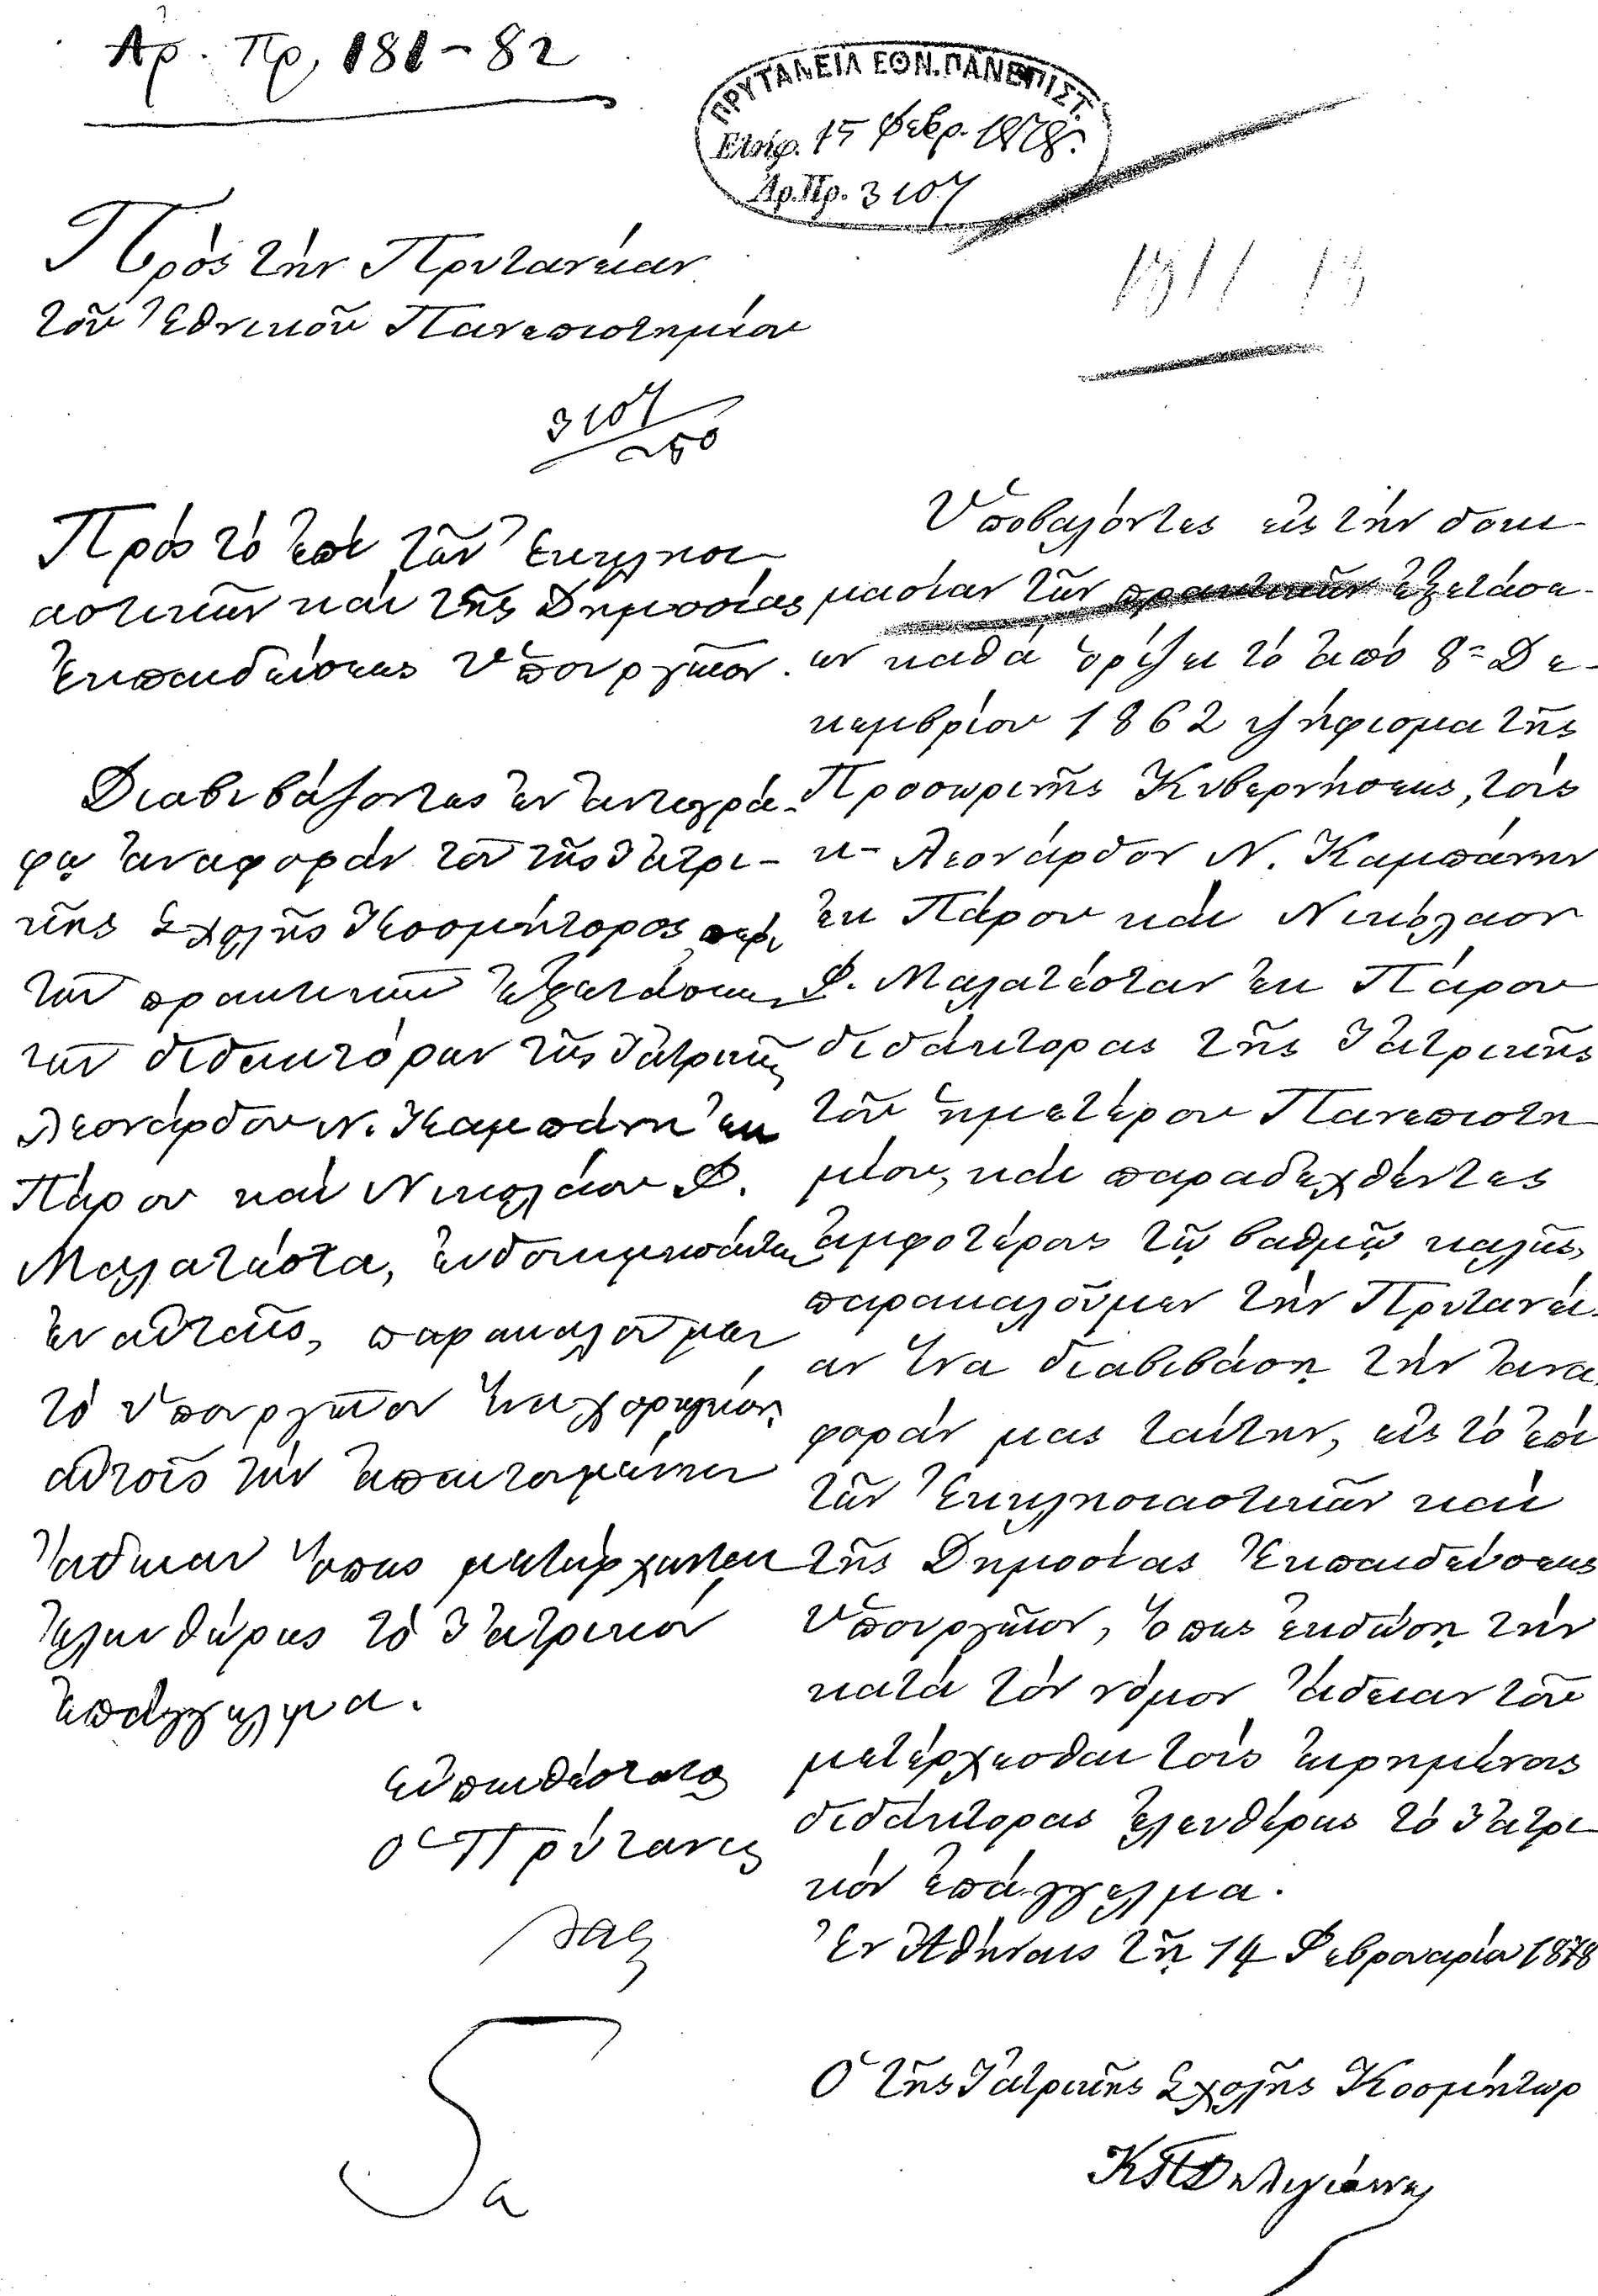 Ἀρ. Πρ, 181-82
ΠΡΥΤΑΝΕΙΑ ΕΘΝ. ΠΑΝΕΠΙΣΤ.
Εἰσήχ. 15 Φεβρ. 1878
Ἀρ.Πρ. 3107
Πρὸς τὴν Πρυτανείαν
τοῦ Ἐθνικοῦ Πανεπιστημίου
3107
Πρὸς τὸ ἐπὶ τῶν Ἐκκλησι
αστικῶν καὶ τῆς Δημοσίας
Ἐκπαιδεύσεως Ὑπουργεῖον.
Διαβιβάζοντες ἐν ἀντιγρά-
φῳ ἀναφορὰν τοῦ τῆς Ἰατρι-
κῆς Σχολῆς Κοσμήτορος περὶ
τῶν πρακτικῶν ἐξετάσεων
τῶν διδακτόρων τῆς Ἰατρικῆς
Λεονάρδου Ν. Καμπάνη ἐκ
Πάρου καὶ Νικολάου Φ.
Μαλατέστα, εὐδοκιμησάντων
ἐν αὐταῖς, παρακαλοῦμεν
τὸ Ὑπουργεῖον ἵνα χορηγήσῃ
αὐτοῖς τὴν ἀπαιτουμένην
ἄδειαν ὅπως μετέρχωνται
ἐλευθέρως τὸ Ἰατρικὸν
ἐπάγγελμα.
εὐπειθέστατος
ὁ Πρύτανις
Ὑποβαλόντες εἰς τὴν δοκι-
μασίαν τῶν πρακτικῶν ἐξετάσε-
ων καθὰ ὁρίζει τὸ ἀπὸ 8ης Δε-
κεμβρίου 1862 ψήφισμα τῆς
Προσωρινῆς Κυβερνήσεως, τοὺς
κ- Λεονάρδον Ν. Καμπάνην
ἐκ Πάρου καὶ Νικόλαον
Φ. Μαλατέσταν ἐκ Πάρου
διδάκτορας τῆς Ἰατρικῆς
τοῦ ἡμετέρου Πανεπιστη
μίου, καὶ παραδεχθέντες
ἀμφοτέρους τῷ βαθμῷ καλῶς,
παρακαλοῦμεν τὴν Πρυτανεί-
αν ἵνα διαβιβάσῃ τὴν ἀνα-
φοράν μας ταύτην, εἰς τὸ ἐπὶ
τῶν Ἐκκλησιαστικῶν καὶ
τῆς Δημοσίας Ἐκπαιδεύσεως
Ὑπουργεῖον, ὅπως ἐκδώσῃ τὴν
κατὰ τὸν νόμον ἄδειαν τοῦ
μετέρχεσθαι τοὺς εἰρημένους
διδάκτορας ἐλευθέρως τὸ Ἰατρι
κὸν ἐπάγγελμα.
Ἐν Ἀθήναις τῇ 14 Φεβρουαρίου 1878
Ὁ τῆς Ἰατρικῆς Σχολῆς Κοσμήτωρ